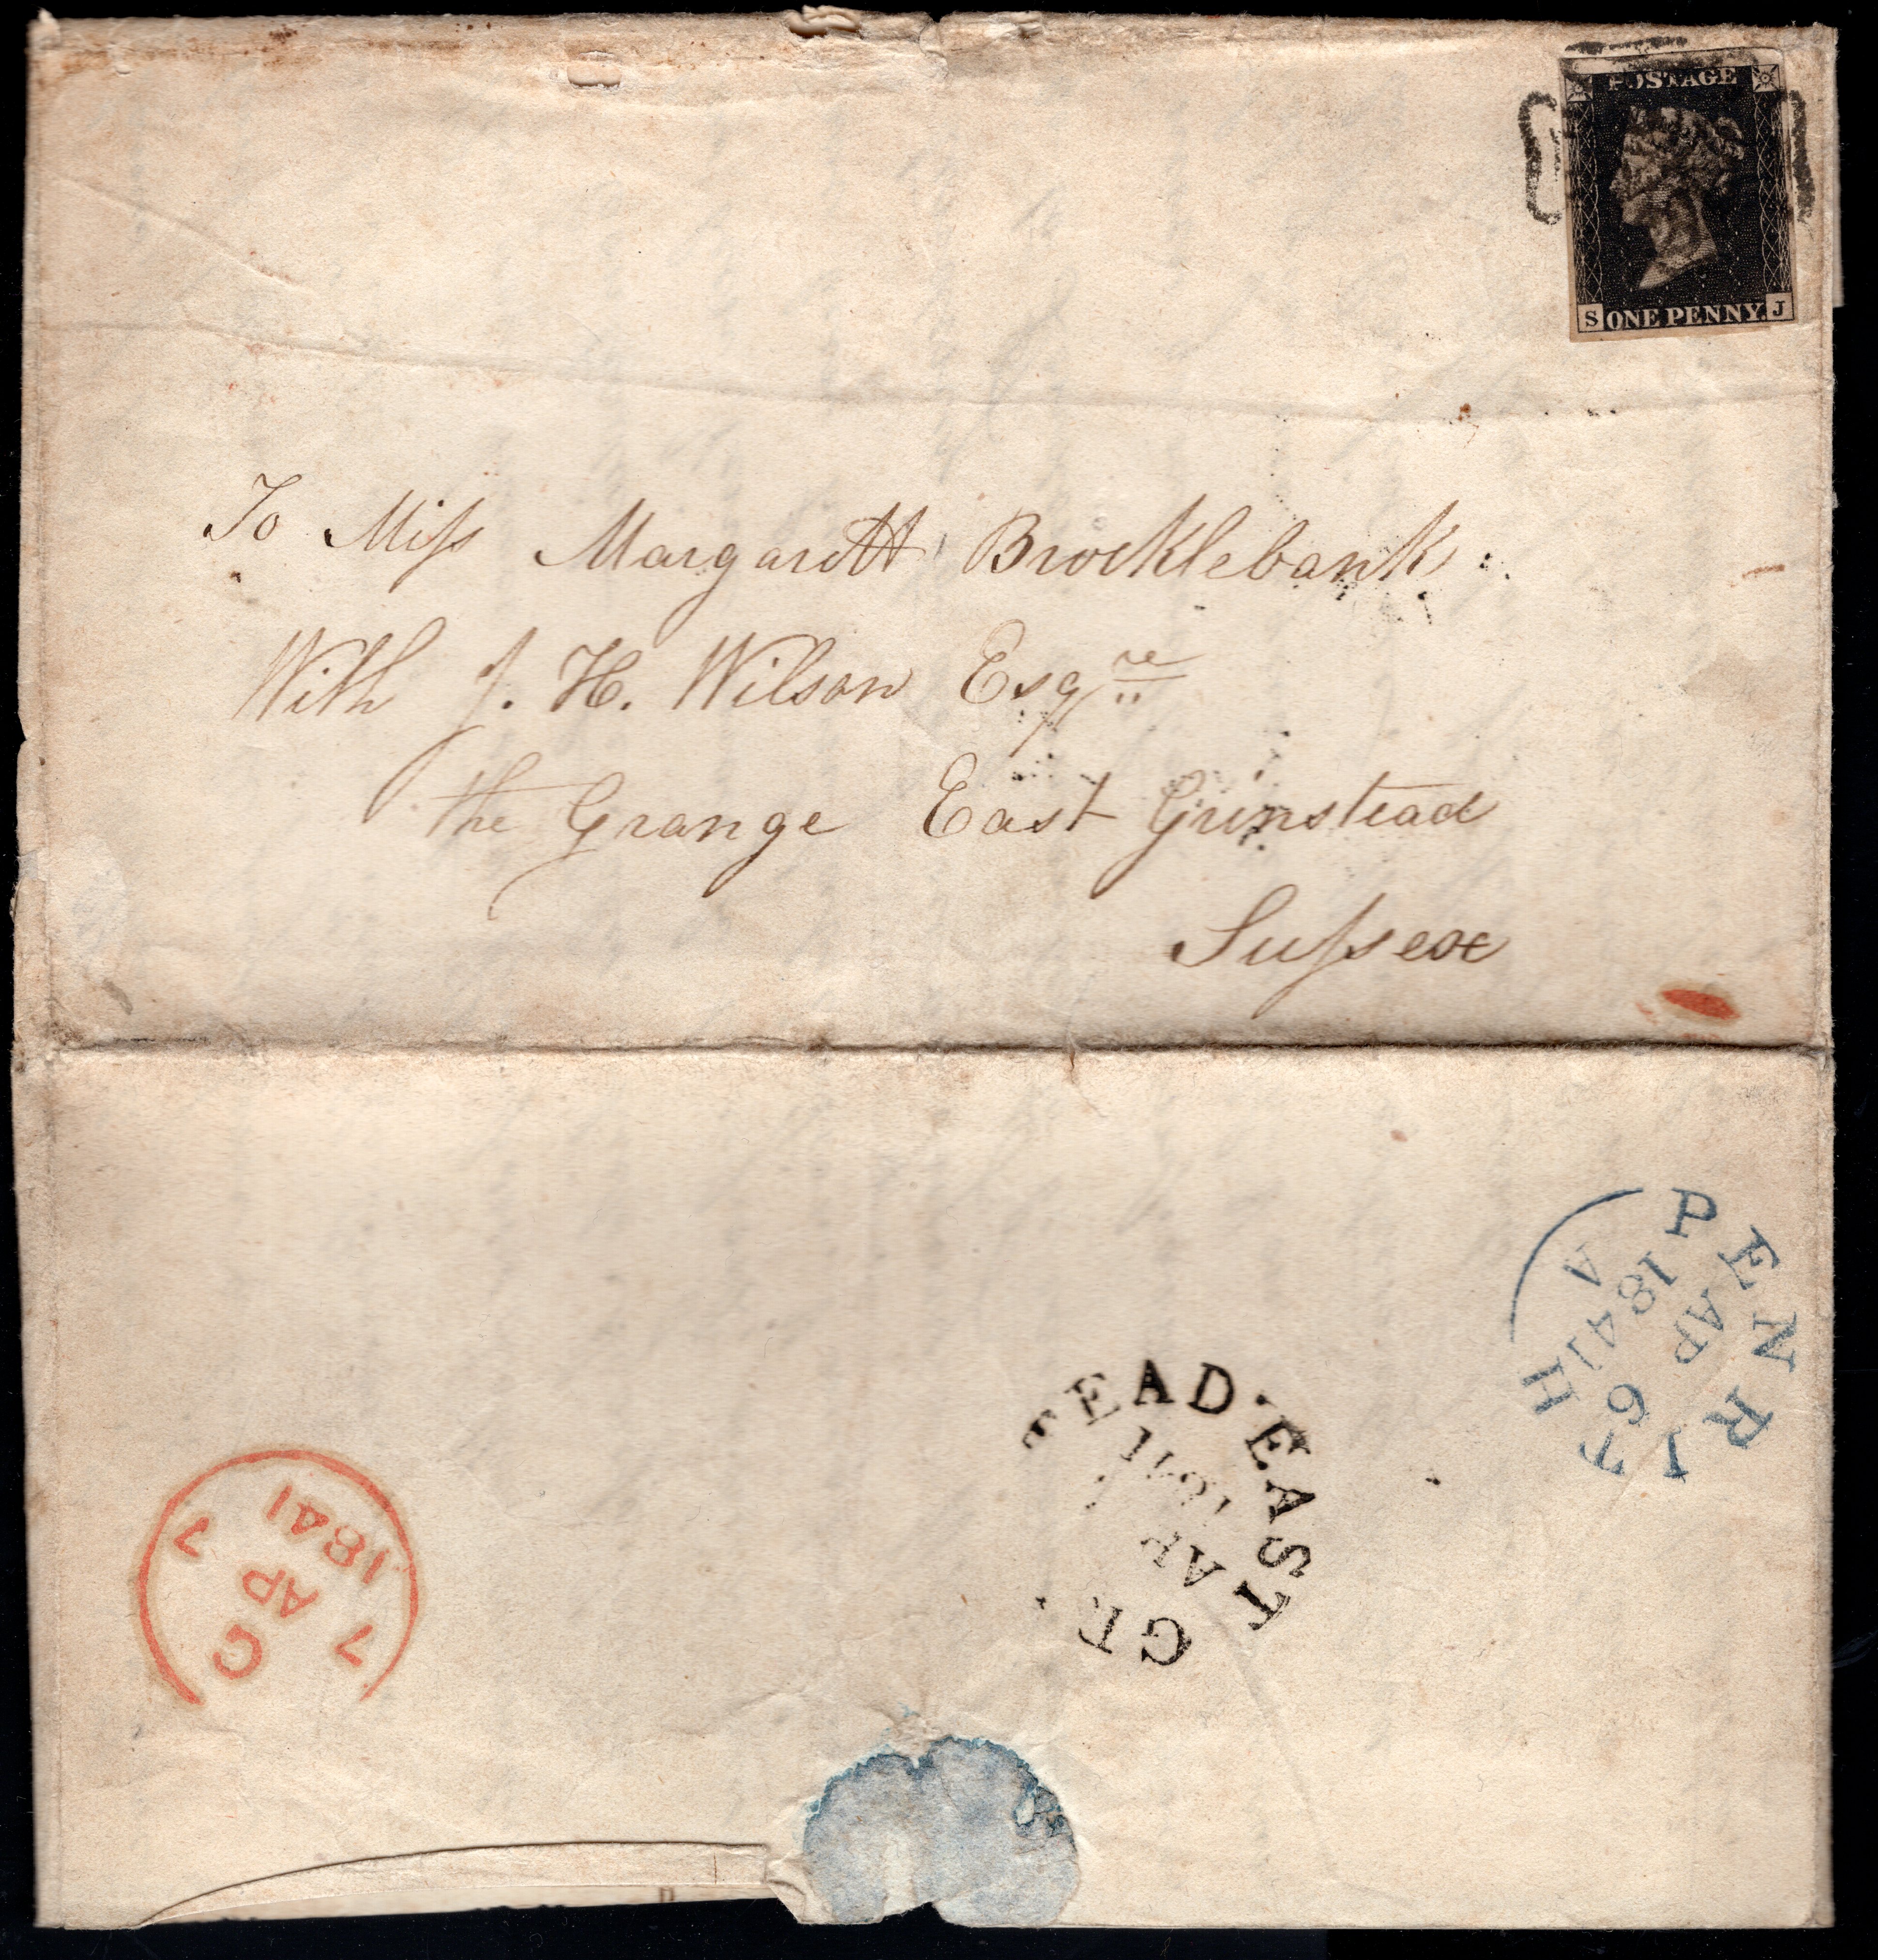 POSTAGE
S ONE PENNY J
To Miſs Margarett Brocklebank
With J. H. Wilson Esqre
the Grange East Grinstead
Suſsex
PENRITH
AP 6
1841
A
TEAD·EAST GR
AP
1841
G
7 AP 7
1841